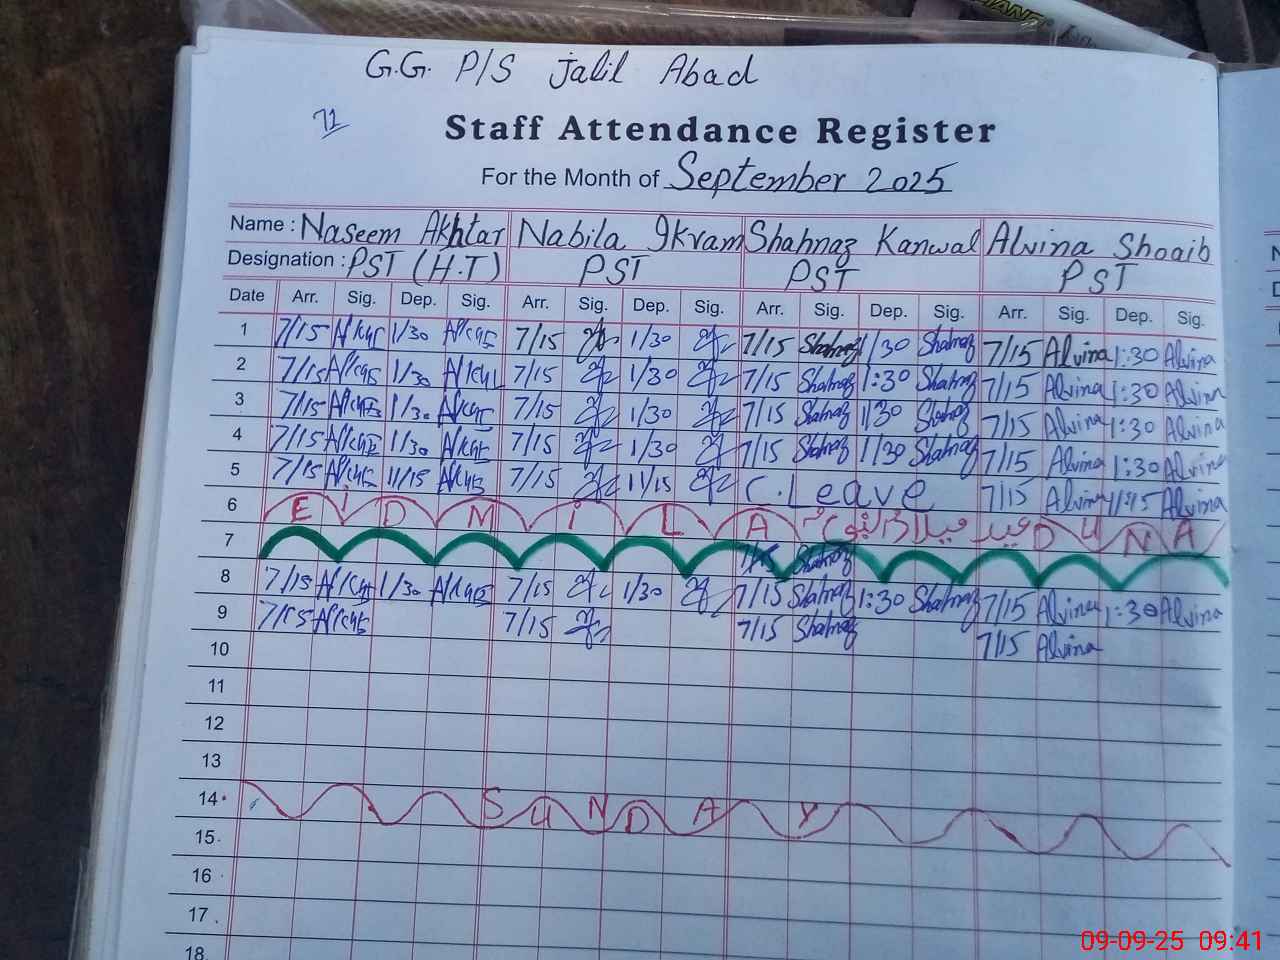 G.G. P/S Jalil Abad
71
Staff Attendance Register
For the Month of September 2025
Name : Naseem Akhtar Nabila Ikram Shahnaz Kanwal Alvina Shoaib
Designation : PST (H.T) PST PST PST
Date Arr. Sig. Dep. Sig. Arr. Sig. Dep. Sig. Arr. Sig. Dep. Sig. Arr. Sig. Dep. Sig.
1 7/15 1/30 7/15 1/30 7/15 Shahnaz 1/30 Shahnaz 7/15 Alvina 1:30 Alvina
2 7/15 1/30 7/15 1/30 7/15 Shahnaz 1:30 Shahnaz 7/15 Alvina 1:30 Alvina
3 7/15 1/30 7/15 1/30 7/15 Shahnaz 1/30 Shahnaz 7/15 Alvina 1:30 Alvina
4 7/15 1/30 7/15 1/30 7/15 Shahnaz 1/30 Shahnaz 7/15 Alvina 1:30 Alvina
5 7/15 11/15 7/15 11/15 C. Leave 7/15 Alvina 11:15 Alvina
6 E i D M i L A عید میلاد النبی D U N A
7 7/15 Shahnaz
8 7/15 1/30 7/15 1/30 7/15 Shahnaz 1:30 Shahnaz 7/15 Alvina 1:30 Alvina
9 7/15 7/15 7/15 Shahnaz 7/15 Alvina
10
11
12
13
14 S U N D A Y
15
16
17
18
09-09-25 09:41